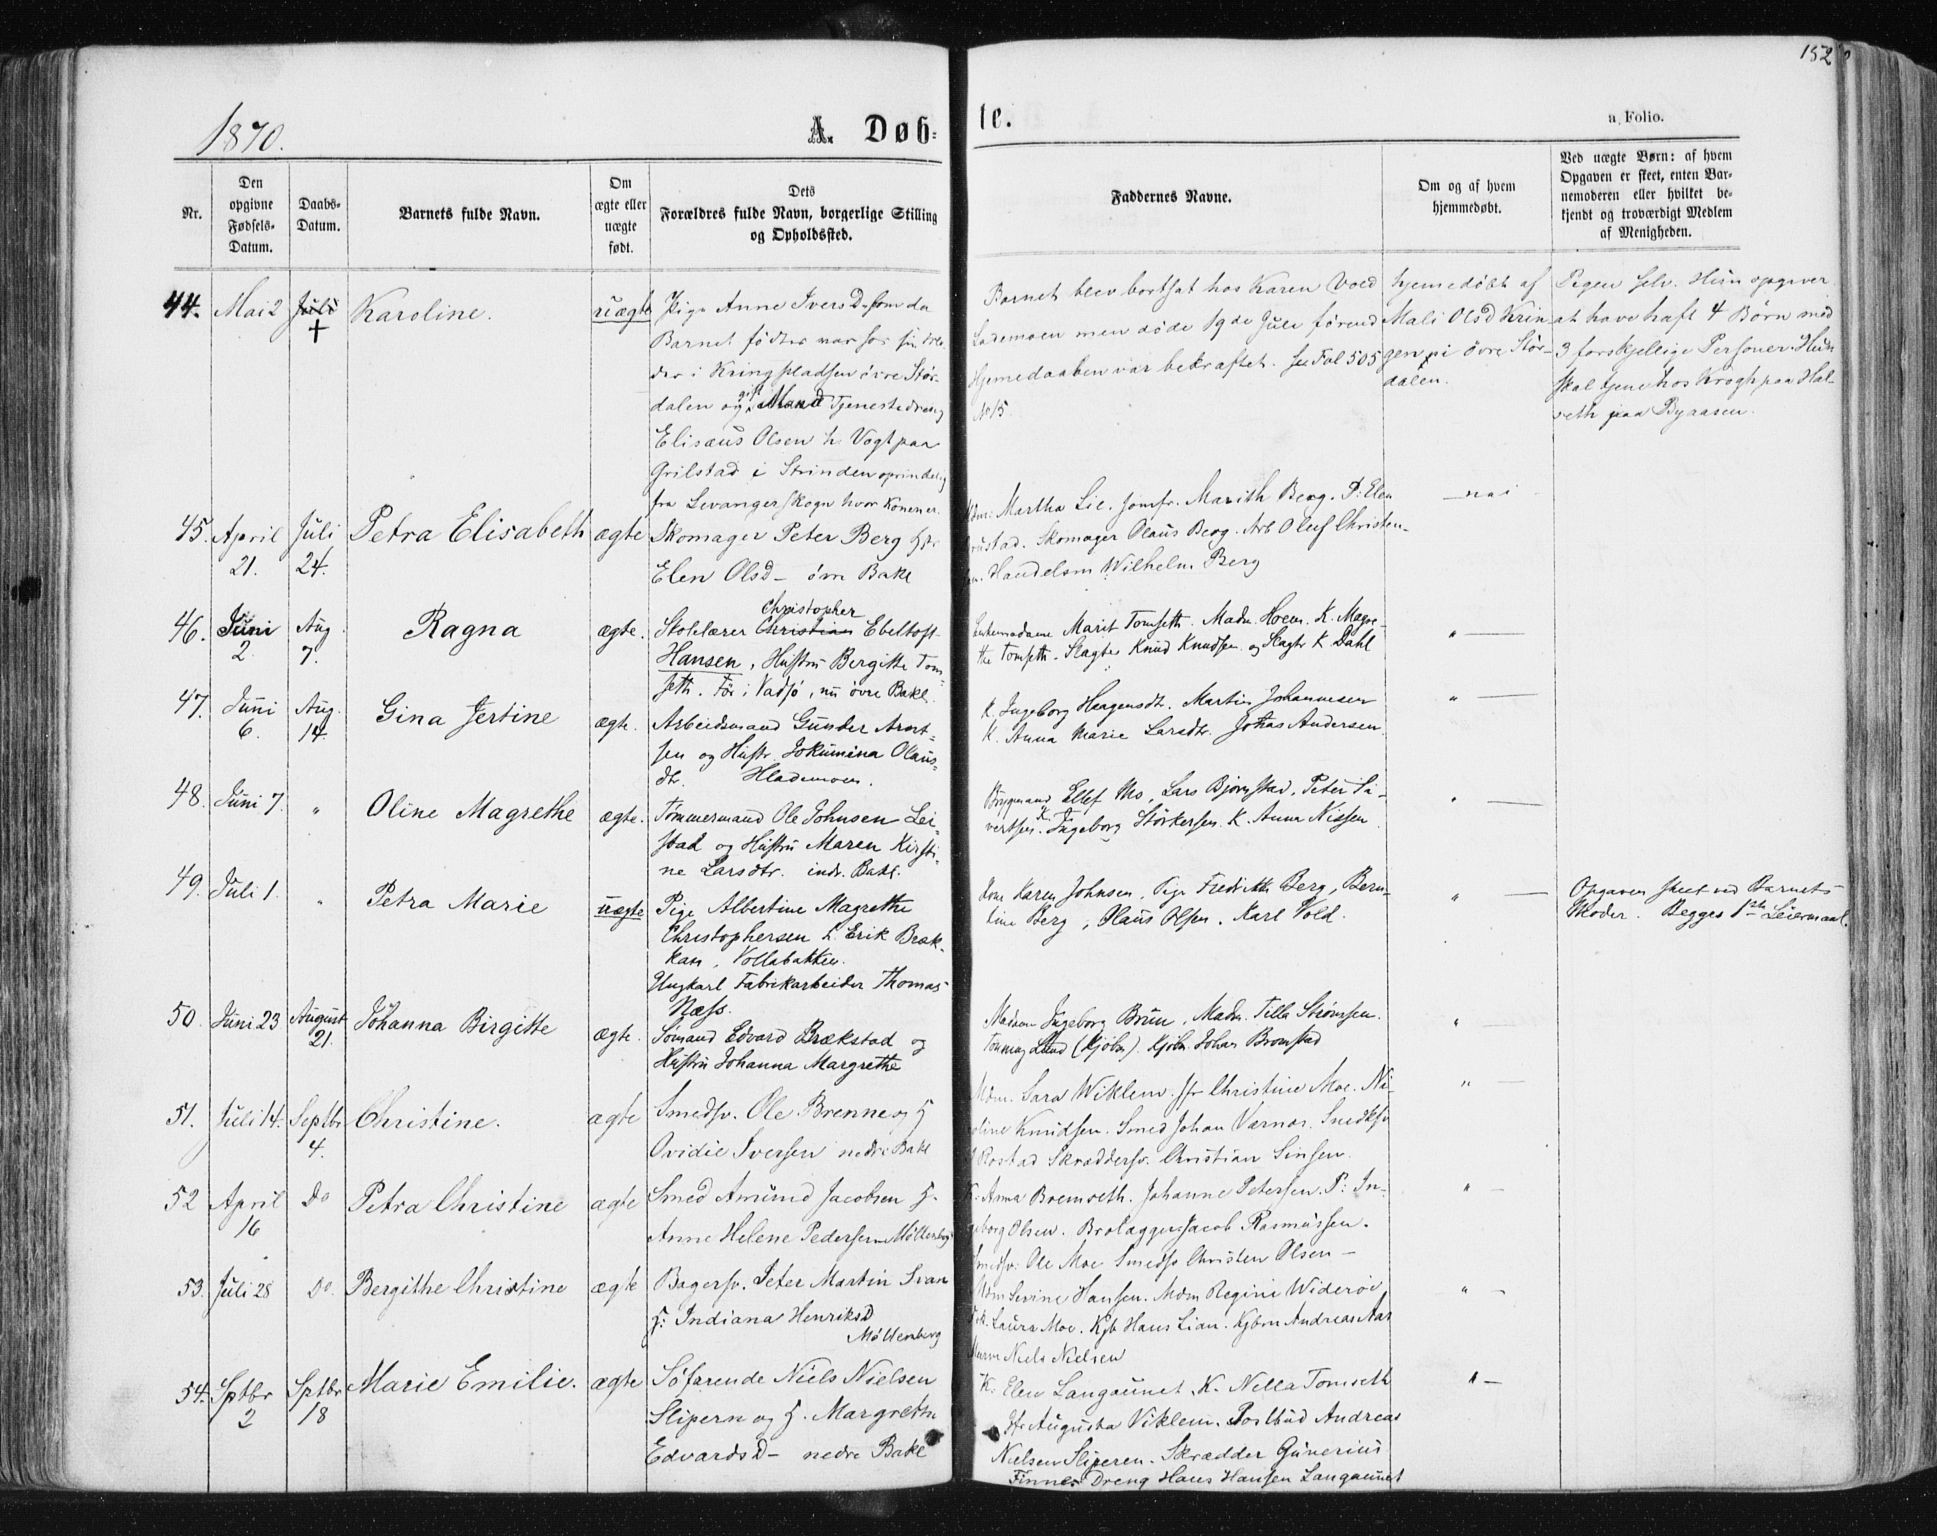 152
1870.
A. Døb-
te.
a, Folio.
Nr.
Den
opgivne
Fødsels-
Datum.
Daabs-
Datum.
Barnets fulde Navn.
Om
ægte eller
uægte
født.
Dets
Forældres fulde Navn, borgerlige Stilling
og Opholdssted.
Faddernes Navne.
Om og af hvem
hjemmedøbt.
Ved uægte Børn: af hvem
Opgaven er skeet, enten Bar-
nemoderen eller hvilket be-
kjendt og troværdigt Medlem
af Menigheden.
44. Mai 2 Juli + Karoline. uægte
Pige Anne Ivers D. som da
Barnet fødtes var hos sin
der i Kringpladsen øvre Stør-
dalen og gift Mand Tjenestedreng
Elisæus Olsen h. Vogt paa
Grilstad i Strinden oprindelig
fra Levanger Skogn hvor Konen er.
Barnet blev bortsat hos Karen Vold
Lademoen men døde 19de Juli førend
Hjemedaaben var bekræftet. se Fol 505
No 15.
hjemedøbt af
Mali Olsd Krin
gen i øvre Stør-
dalen.
Pigen selv. Hun opgiver
at have haft 4 Børn med
3 forskjellige Personer. Hun
skal tjene hos Krogh paa Hal-
seth paa Byaasen.
45. April 21. Juli 24. Petra Elisabeth ægte
Skomager Peter Berg H.
Elen Olsd - øvre Bakl
Martha Lie. Jomfr. Marith Berg. P: Elen
Skomager Olaus Berg. Arb Oluf Christen-
Handelsm Wilhelm Berg
nei
46. Juni 2. Aug. 7. Ragna ægte.
Skolelærer Christian Christopher Ebeltoft
Hansen, Hustru Bergitte Tom-
seth. Før i Vadsø, nu øvre Bakl.
Enkemadame Marit Tomseth. Madm. Hoem. K. Magre-
the Tomseth. Slagter Knud Knudsen og Slagtr K. Dahl
" —
47. Juni 6. Aug. 14. Gina Jertine ægte.
Arbeidsmand Gunder Arnt-
sen og Hustr. Jokumina Olaus-
dtr. Hlademoen.
K. Ingeborg Haagensdt. Martin Johannesen
K. Anna Marie Larsdtr. Johas Andersen
" —
48. Juni 7. " Oline Magrethe ægte.
Tømmermand Ole Johnsen Lei-
stad og Hustru Maren Kirsti-
ne Larsdtr. indr. Bakl.
Bryggemand Ellef Mo, Lars Bjørnstad, Peter Si-
vertsen. K. Ingeborg Størkersen. K. Anna Nissen
" —
49. Juli 1. " Petra Marie uægte
Pige Albertine Magrethe
Christophersen h. Erik Bræk-
kan, Vollabakken.
Ungkarl Fabrikarbeider Thomas
Næss.
Karen Johnsen, Pige Fredrikke Berg, Bern-
tine Berg, Olaus Olsen, Karl Vold.
" —
Opgaven skeet ved Barnets
Moder. Begges 1ste Leiermaal.
50. Juni 23 August 21. Johanna Birgitte ægte.
Sømand Edvard Brækstad og
Hustru Johanna Margrethe
Madame Ingeborg Brun, Madm. Tilla Strømsen.
Lund (Kjøbm). Kjøbm. Johan Bromstad
" —
51. Juli 14. Septbr 4. Christine. ægte
Smedsv. Ole Brenne og H
Ovidie Iversen nedre Bakl
Mdm. Sara Wiklem. Jfr Christine Moe. Ni-
oline Knudsen. Smed Johan Værnas. Snedksv
Rostad Skræddersv. Christian Sinsen.
" —
52 April 16 Do Petra Christine ægte
Smed Amund Jacobsen H.
Anne Helene Pedersen Møllenberg
K. Anna Bremseth. Johanne Petersen. P: In-
geborg Olsen. Brolægger Jacob Rasmussen.
Smedsv: Ole Moe Smedsv Christen Olsen -
" —
53. Juli 28 Do. Bergithe Christine ægte
Bagersv. Peter Martin Svan
H: Indiana HenriksD
Møllenberg
Mdm Sevine Hansen. Mdm Regine Widerøe
Laura Moe. Kjb Hans Lian. Kjbm Andreas Aas
Niels Nielsen
" —
54. Sptbr 2 Sptbr 18 Marie Emilie. ægte
Søfarende Niels Nielsen
Slipern og H. Margrethe
Edvards D - nedre Bakl
K: Elen Langaunet. K. Nella Tomseth
Jfr Augusta Viklem. Postbud Andreas
Nielsen Sliperen. Skrædder Gunerius
Finnes Dreng Hans Hansen Langaunet
" —